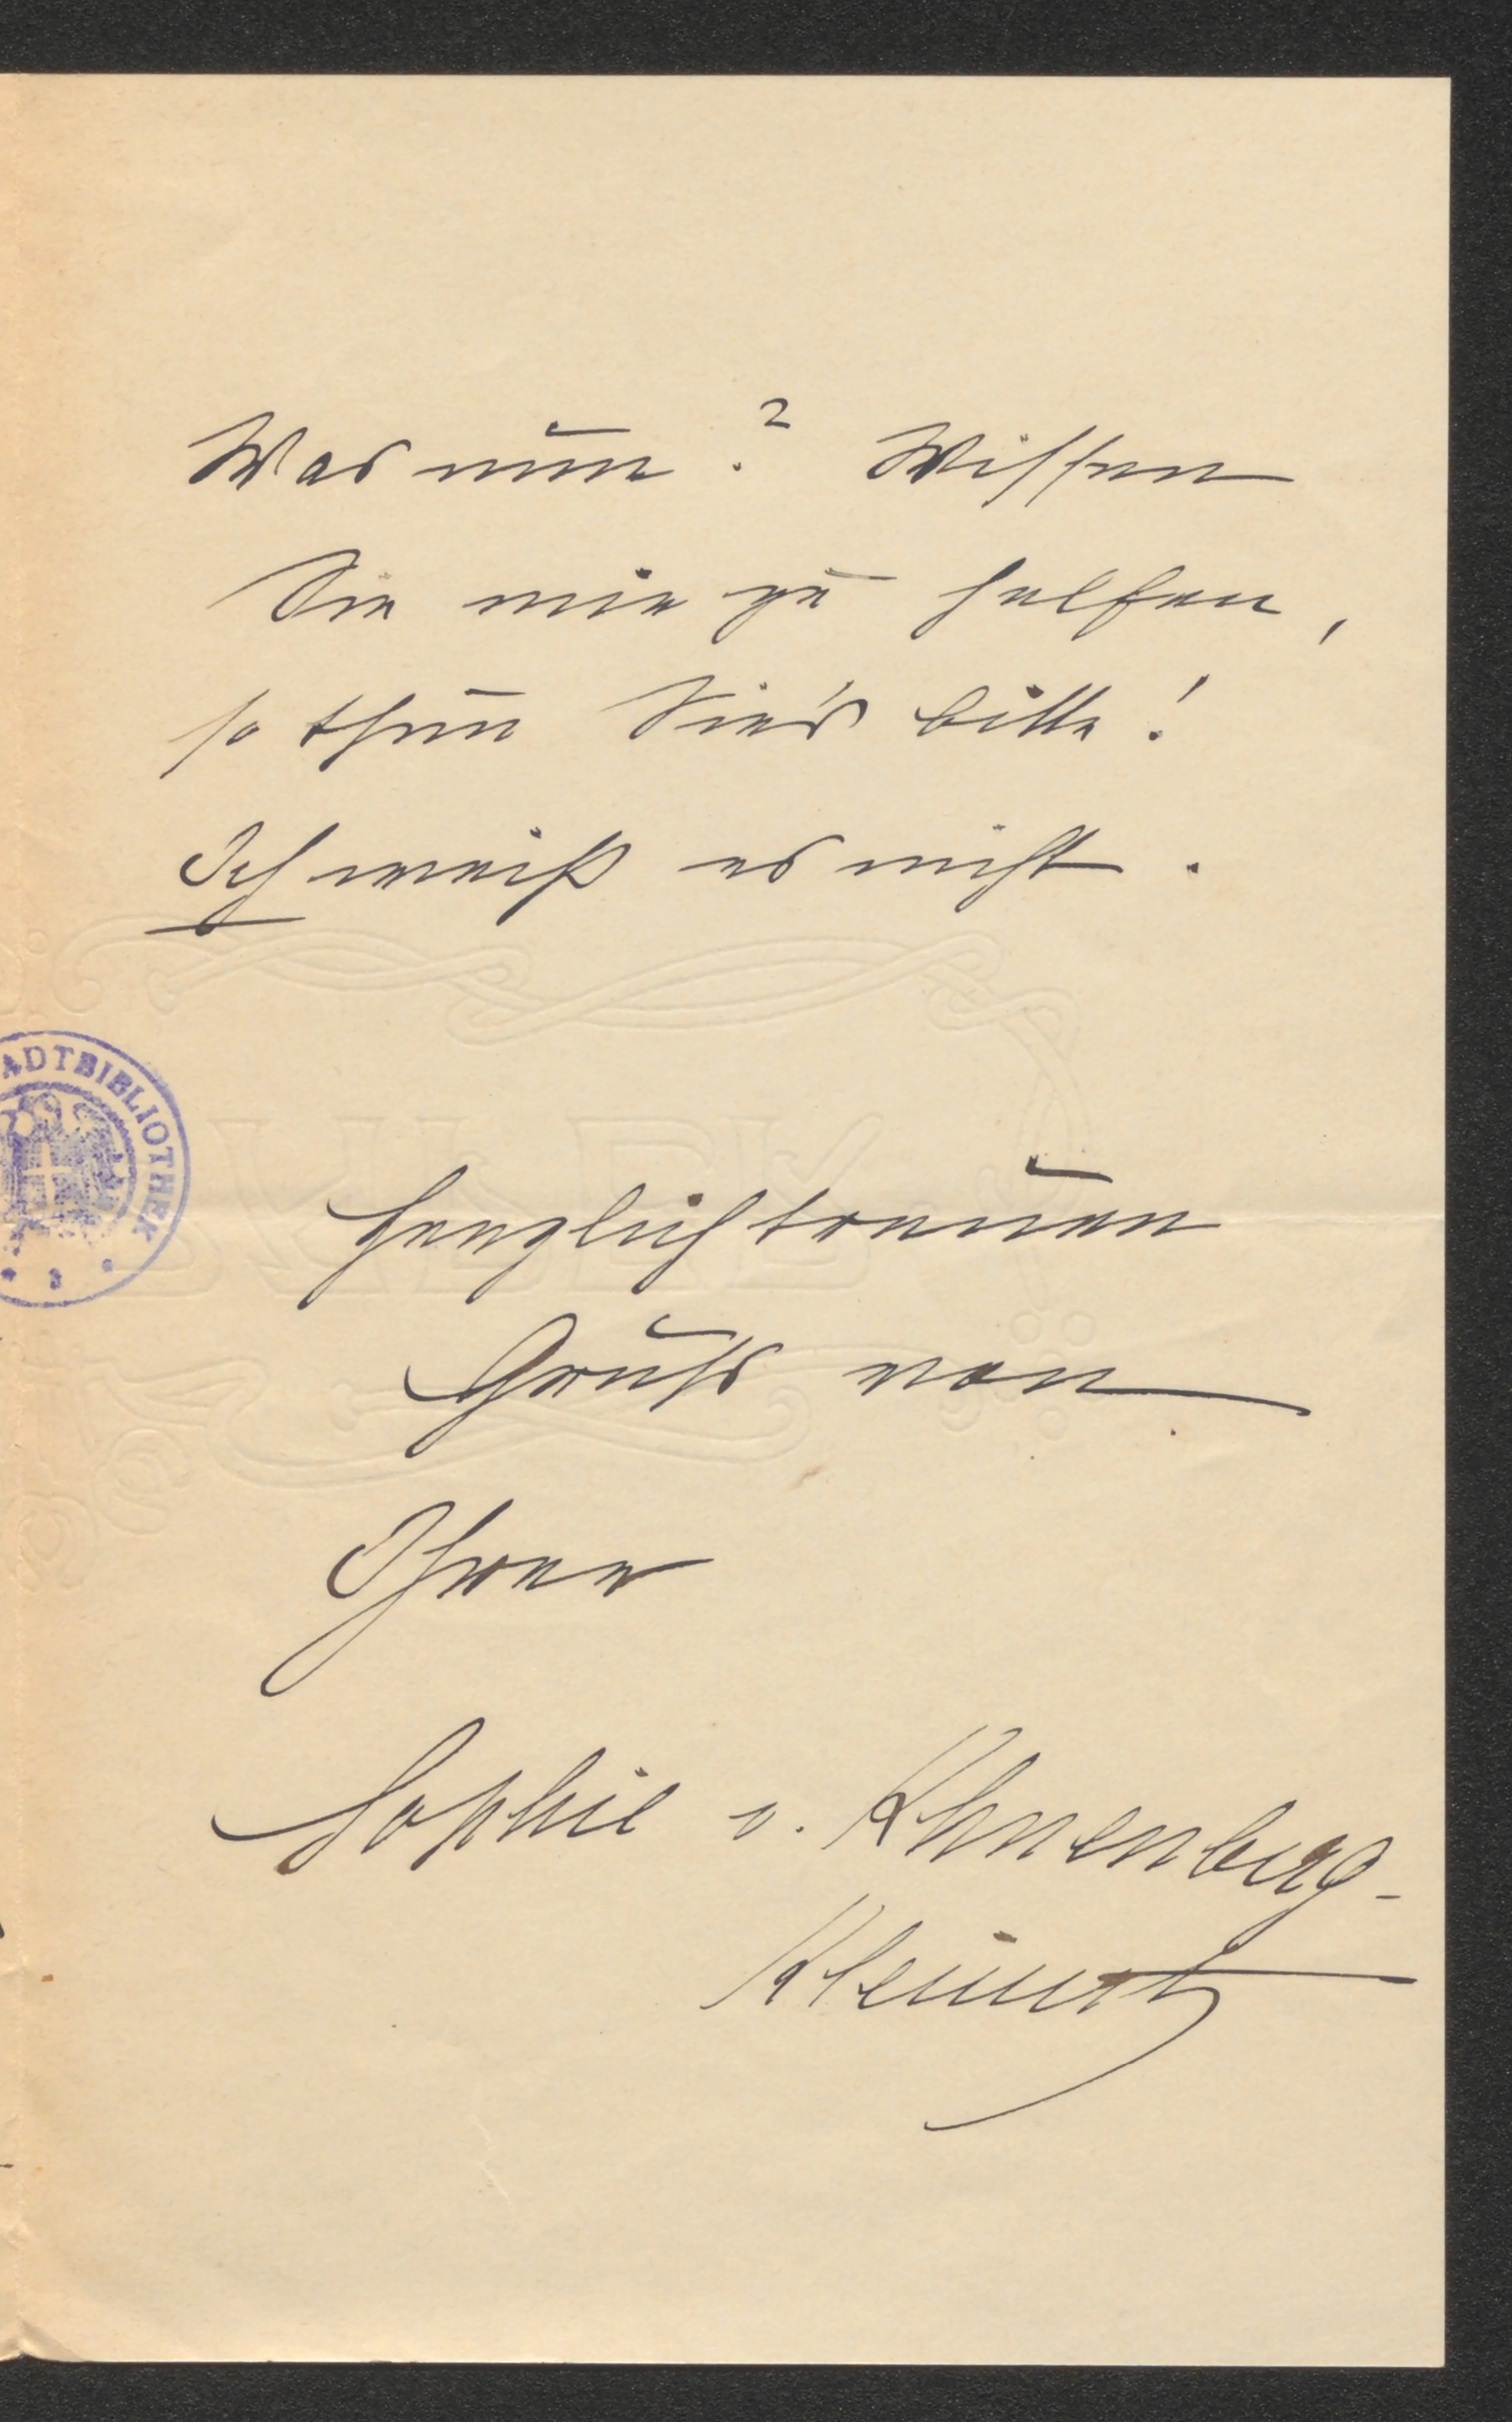 Was nun? Wissen
Sie mir zu helfen,
so thun Sie's bitte!
Ich weiß es nicht.
STADTBIBLIOTHEK
herzlichtreuen
Gruß von
Ihrer
Sophie v. Khuenberg-
Kleinert